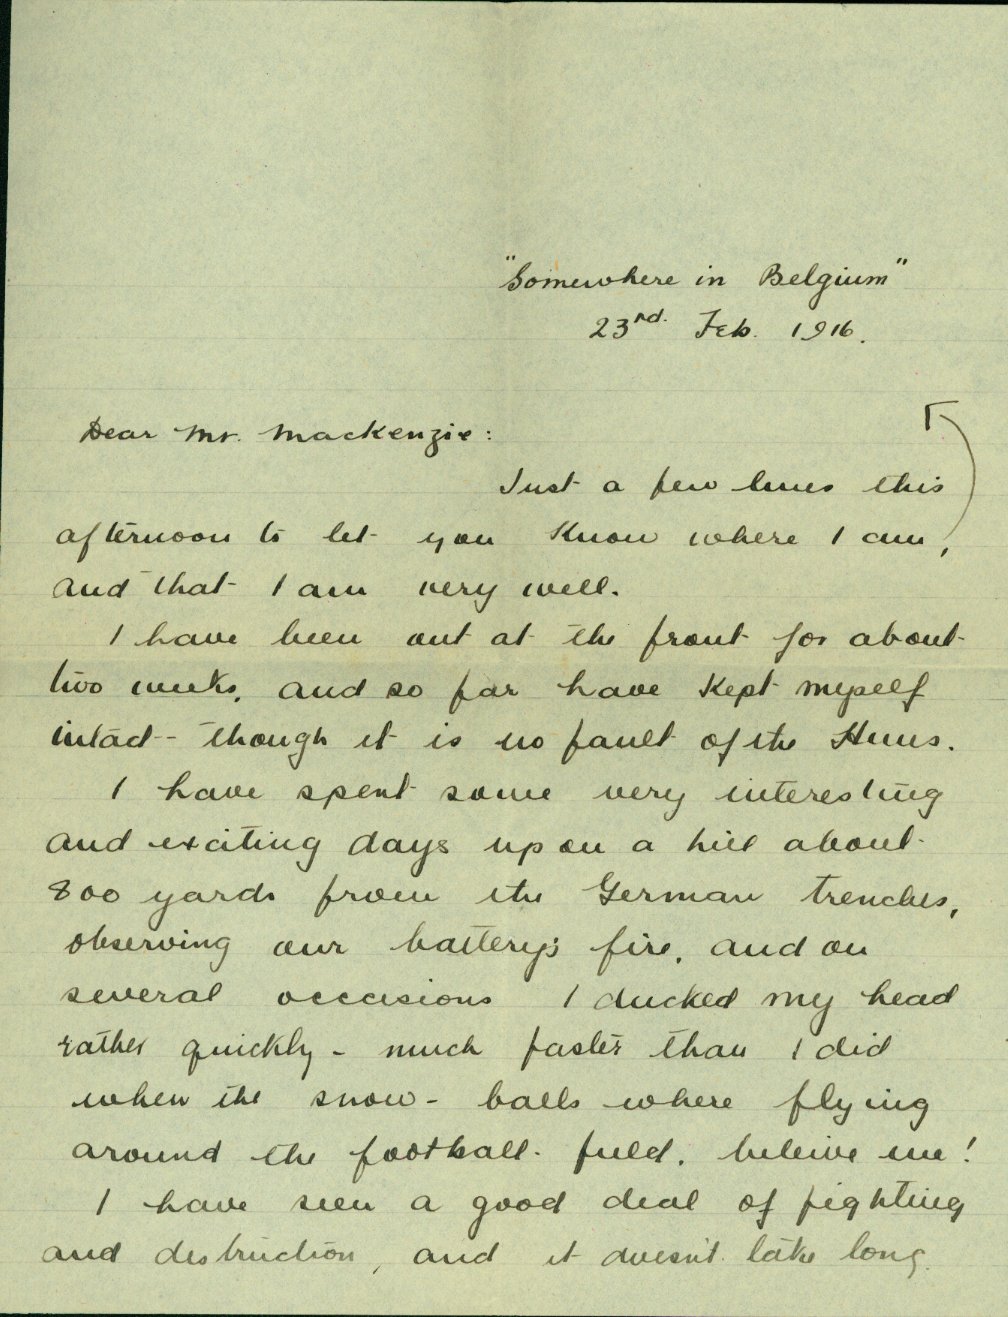 "Somewhere in Belgium"
23rd. Feb. 1916.
Dear Mr. Mackenzie:
Just a few lines this
afternoon to let you know where I am,
and that I am very well.
I have been out at the front for about
two weeks, and so far have kept myself
intact - though it is no fault of the Huns.
I have spent some very interesting
and exciting days up on a hill about
800 yards from the German trenches,
observing our battery's fire, and on
several occasions I ducked my head
rather quickly - much faster than I did
when the snow-balls where flying
around the football-field, beleive me!
I have seen a good deal of fighting
and destruction, and it doesn't take long